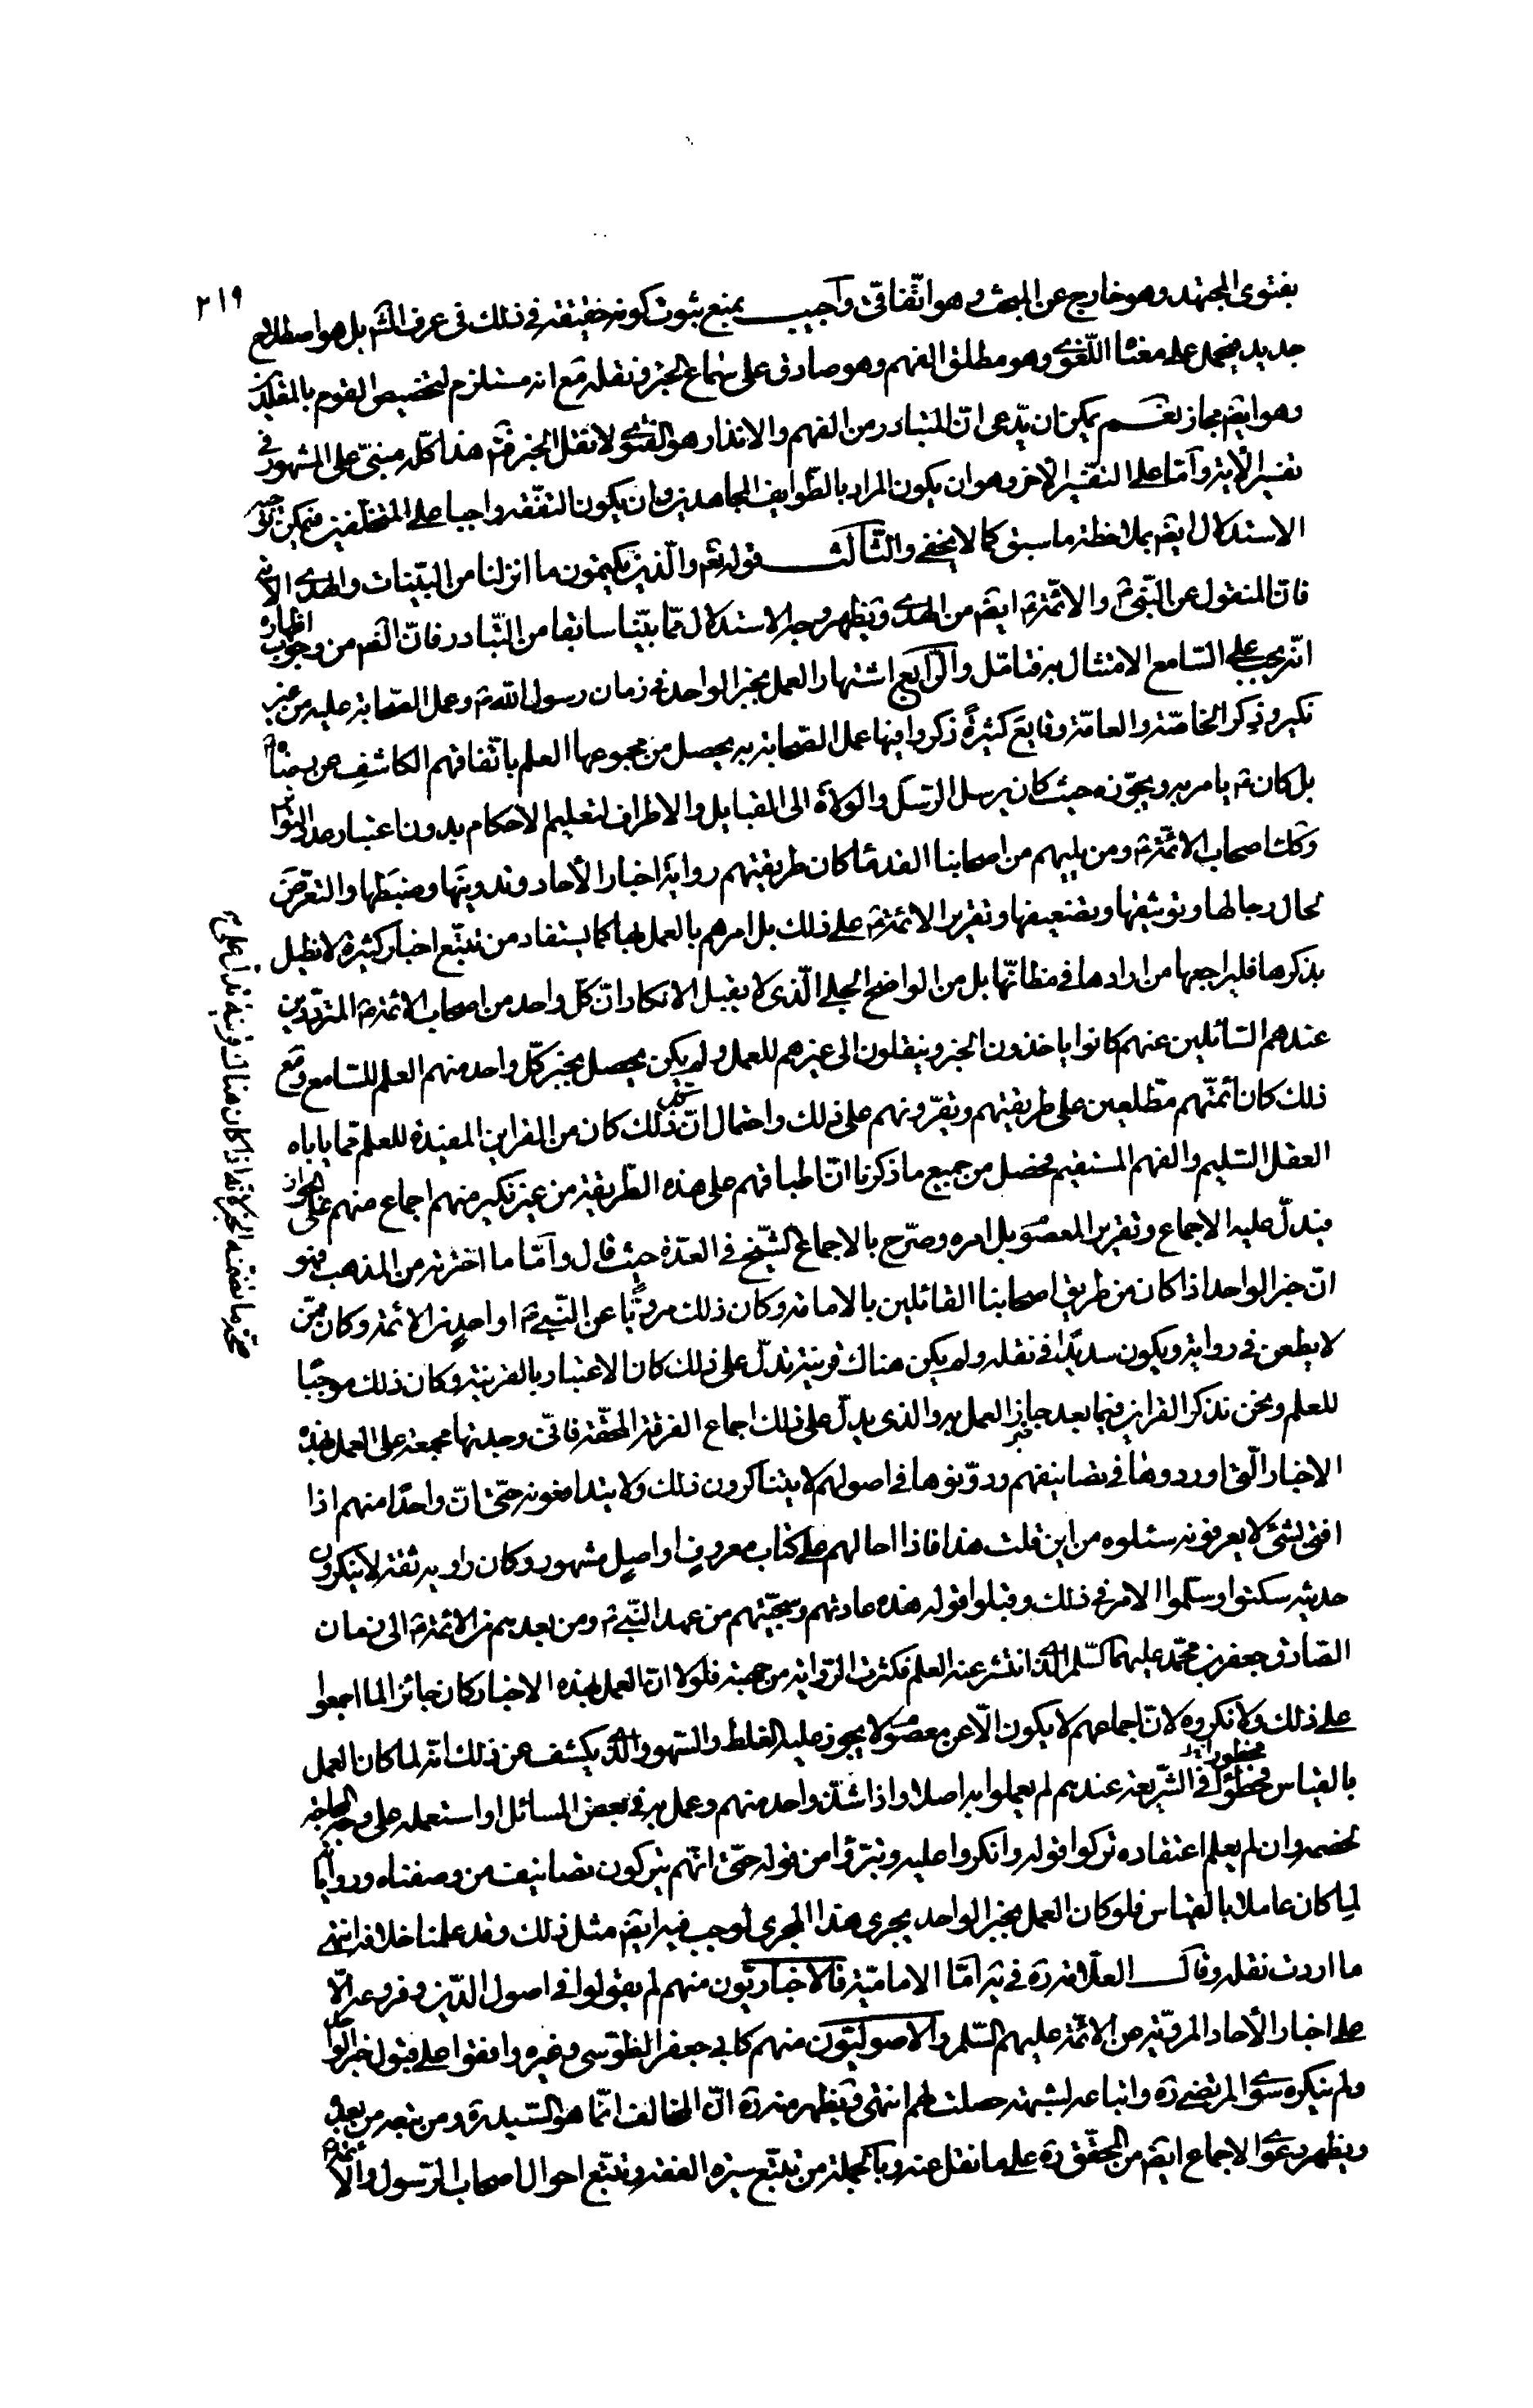 ٢١٩
بفتوى المجتهد وهو خارج عن المبحث وهو اتّفاقىّ وأجيب بمنع ثبوت كونه حقيقة في ذلك فى عرف الش بل هو اصطلاح
جديد فيحمل على معناه اللّغوي وهو مطلق الفهم وهو صادق على سماع الخبر ونقله مع انه مستلزم لتخصيص القوم بالمقلّدين
وهو ايضم مجاز نعم يمكن ان يدّعى انّ المتبادر من الفهم والانذار هو الفتوى لا نقل الخبر فتم هذا كلّه مبنىّ على المشهور في
تفسير الأية وأمّا على التفسير الأخر وهو ان يكون المراد بالطّوايف المجاهدين وان يكون التفقّه واجبا على المتخلّفين فيمكن توجيه
الاستدلال ايضم بملاحظة ما سبق كما لا يخفى والثّالث قوله تعم والّذين يكتمون ما انزلنا من البيّنات والهدى الاية
فانّ المنقول عن النّبىّ م والائمّة م ايضم من الهدى ويظهر وجه الاستدلال ممّا بيّنا سابقا من التّبادر فانّ الفهم من وجوب اظهاره
انّه يجب على السّامع الامتثال به فتامّل والرّابع اشتهار العمل بخبر الواحد في زمان رسول الله م وعمل الصّحابة عليه من غير
نكير وذكر الخاصّة والعامّة وقايع كثيرةً ذكروا فيها عمل الصّحابة به يحصل من مجموعها العلم باتّفاقهم الكاشف عن رضاه م
بل كان م يامر به ويجوّزه حيث كان يرسل الرّسل والولاة الى القبايل والاطراف لتعليم الاحكام بدون اعتبار عدد التواتر
وكذا اصحاب الائمّة م ومن يليهم من اصحابنا القدمآء كان طريقتهم رواية اخبار الأحاد وتدوينها وضبطها والتعرّض
لحال رجالها وتوثيقها وتضعيفها وتقرير الائمّة م على ذلك بل امرهم بالعمل بها كما يستفاد من تتبّع اخبار كثيرة لا نطيل
بذكرها فليراجعها من ارادها في مظانّها بل من الواضح الجلى الّذى لا يقبل الانكار انّ كلّ واحد من اصحاب الائمّة م المتردّدين
عندهم السّائلين عنهم كانوا ياخذون الخبر وينقلون الى غيرهم للعمل ولم يكن يحصل بخبر كلّ واحد منهم العلم للسّامع ومع
ذلك كان أئمّتهم مطّلعين على طريقتهم ويقرّونهم على ذلك واحتمال انّ كلّ ذلك كان من القراين المفيدة للعلم ممّا ياباه
العقل السّليم والفهم المستقيم فحصل من جميع ما ذكرنا انّ اطباقهم على هذه الطّريقة من غير نكير منهم اجماع منهم على الجواز
فيدلّ عليه الاجماع وتقرير المعصوم بل امره وصرّح بالاجماع الشّيخ في العدّة حيث قال وأمّا ما اخترته من المذهب فهو
انّ خبر الواحد اذا كان من طريق اصحابنا القائلين بالامامة وكان ذلك مرويًّا عن النّبي م او واحدٍ من الائمّة وكان ممّن
لا يطعن في روايته ويكون سديدًا في نقله ولم يكن هناك قرينة تدلّ على ذلك كان الاعتبار بالقرينة وكان ذلك موجبًا
للعلم ونحن نذكر القراين فيما بعد جاز العمل به والذى يدلّ على ذلك اجماع الفرقة المحقّة فانّى وجدتها مجمعة على العمل بهذه
الاخبار الّتى اوردوها في تصانيفهم ودوّنوها في اصولهم لا يتناكرون ذلك ولا يتدافعونه حتّى انّ واحدًا منهم اذا
افتى بشئ لا يعرفونه سئلوه من اين قلت هذا فاذا احالهم على كتاب معروفٍ او اصلٍ مشهور وكان راويه ثقة لا ينكرون
حديثه سكتوا وسلّموا الامر في ذلك وقبلوا قوله هذه عادتهم وسجيّتهم من عهد النّبي م ومن بعدهم من الائمّة م الى زمان
الصّادق جعفر بن محمّد عليهما السّلم الّذى انتشر عنه العلم فكثرت الرّواية من جهته فلولا انّ العمل بهذه الاخبار كان جائزا لما اجمعوا
على ذلك ولانكروه لانّ اجماعهم لا يكون الّا عن معصوم لا يجوز عليه الغلط والسّهو والّذى يكشف عن ذلك انّه لما كان العمل
بالقياس محظورا في الشّريعة عندهم لم يعملوا به اصلا واذا شذّ واحد منهم وعمل به في بعض المسائل او استعمله على وجه المحاجّة
لخصمه وان لم يعلم اعتقاده تركوا قوله وانكروا عليه وتبرّؤا من قوله حتّى انّهم يتركون تصانيف من وصفناه ورواياته
لما كان عاملا بالقياس فلو كان العمل بخبر الواحد يجرى هذا المجرى لوجب فيه ايضم مثل ذلك وقد علمنا خلافه انتهى
ما اردت نقله وقال العلّامة ره في يه امّا الاماميّة فالاخباريّون منهم لم يعولوا في اصول الدّين وفروعه الّا
على اخبار الأحاد المرويّة عن الائمّة عليهم السّلم والاصوليّون منهم كابى جعفر الطّوسى وغيره وافقوا على قبول خبر الواحد
ولم ينكره سوى المرتضى ره واتباعه لشبهة حصلت لهم انتهى ويظهر منه ره انّ المخالف انّما هو السّيّد ره ومن تبعه من بعده
ويظهر دعوى الاجماع ايضم من المحقّق ره على ما نقل عنه وبالجملة من تتبّع سيرة الفقه وتتبّع احوال اصحاب الرّسول والائمّة م
صحّة ما تضمّنه الخبر لانّه اذا كان هناك قرينة تدلّ على